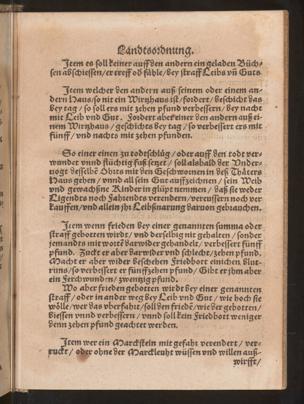 Landtsordnung.
Item es soll keiner auff den andern ein geladen Büch-
sen abschiessen/ er treff od fähle/ bey straff Leibs vn̄ Guts.
Item welcher den andern auß seinem oder einem an-
dern Hauß/ so nit ein Wirtzhaus ist/ fordert/ beschicht das
bey tag/ so soll ers mit zehen pfund verbessern/ bey nacht
mit Leib vnd Gut. Fordert aber einer den andern auß ei-
nem Wirtzhauß/ geschichts bey tag/ so verbessert ers mit
fünff/ vnd nachts mit zehen pfunden.
So einer einen zu todt schlüg/ oder auff den todt ver-
wundet vnnd flüchtig fuß setzet/ soll alsbald der Vnder-
uogt desselbē Ohrts mit den Geschwornen in deß Thäters
Hauß gehen/ vnnd all sein Gut auffzeichnen/ sein Weib
vnd gewachßne Kinder in glüpt nemmen/ daß sie weder
Ligendts noch Fahrendts verendern/ vereussern noch ver-
kauffen/ vnd allein jhr Leibsnarung daruon gebrauchen.
Item wenn frieden bey einer genannten summa oder
straff gebotten wirdt/ vnd derselbig nit gehalten/ sonder
jemandts mit wortē darwider gehandelt/ verbessert fünff
pfund. Zuckt er aber darwider vnd schlecht/ zehen pfund.
Macht er aber wider beschehen Friedbott einichen Blut-
runs/ so verbessert er fünffzehen pfund/ Gibt er jhm aber
ein Ferchwunden/ zwentzig pfund.
Wo aber frieden gebotten wirdt bey einer genannten
straff/ oder in ander weg bey Leib vnd Gut/ wie hoch sie
wölle/ wer das vberfahrt/ soll den friedē/ wie der gebotten/
büessen vnnd verbessern/ vnnd soll kein Friedbott weniger
denn zehen pfund geachtet werden.
Item wer ein Marchstein mit gefahr verendert/ ver-
ruckt/ oder ohne der Marchleuht wüssen vnd willen auß-
wirfft/